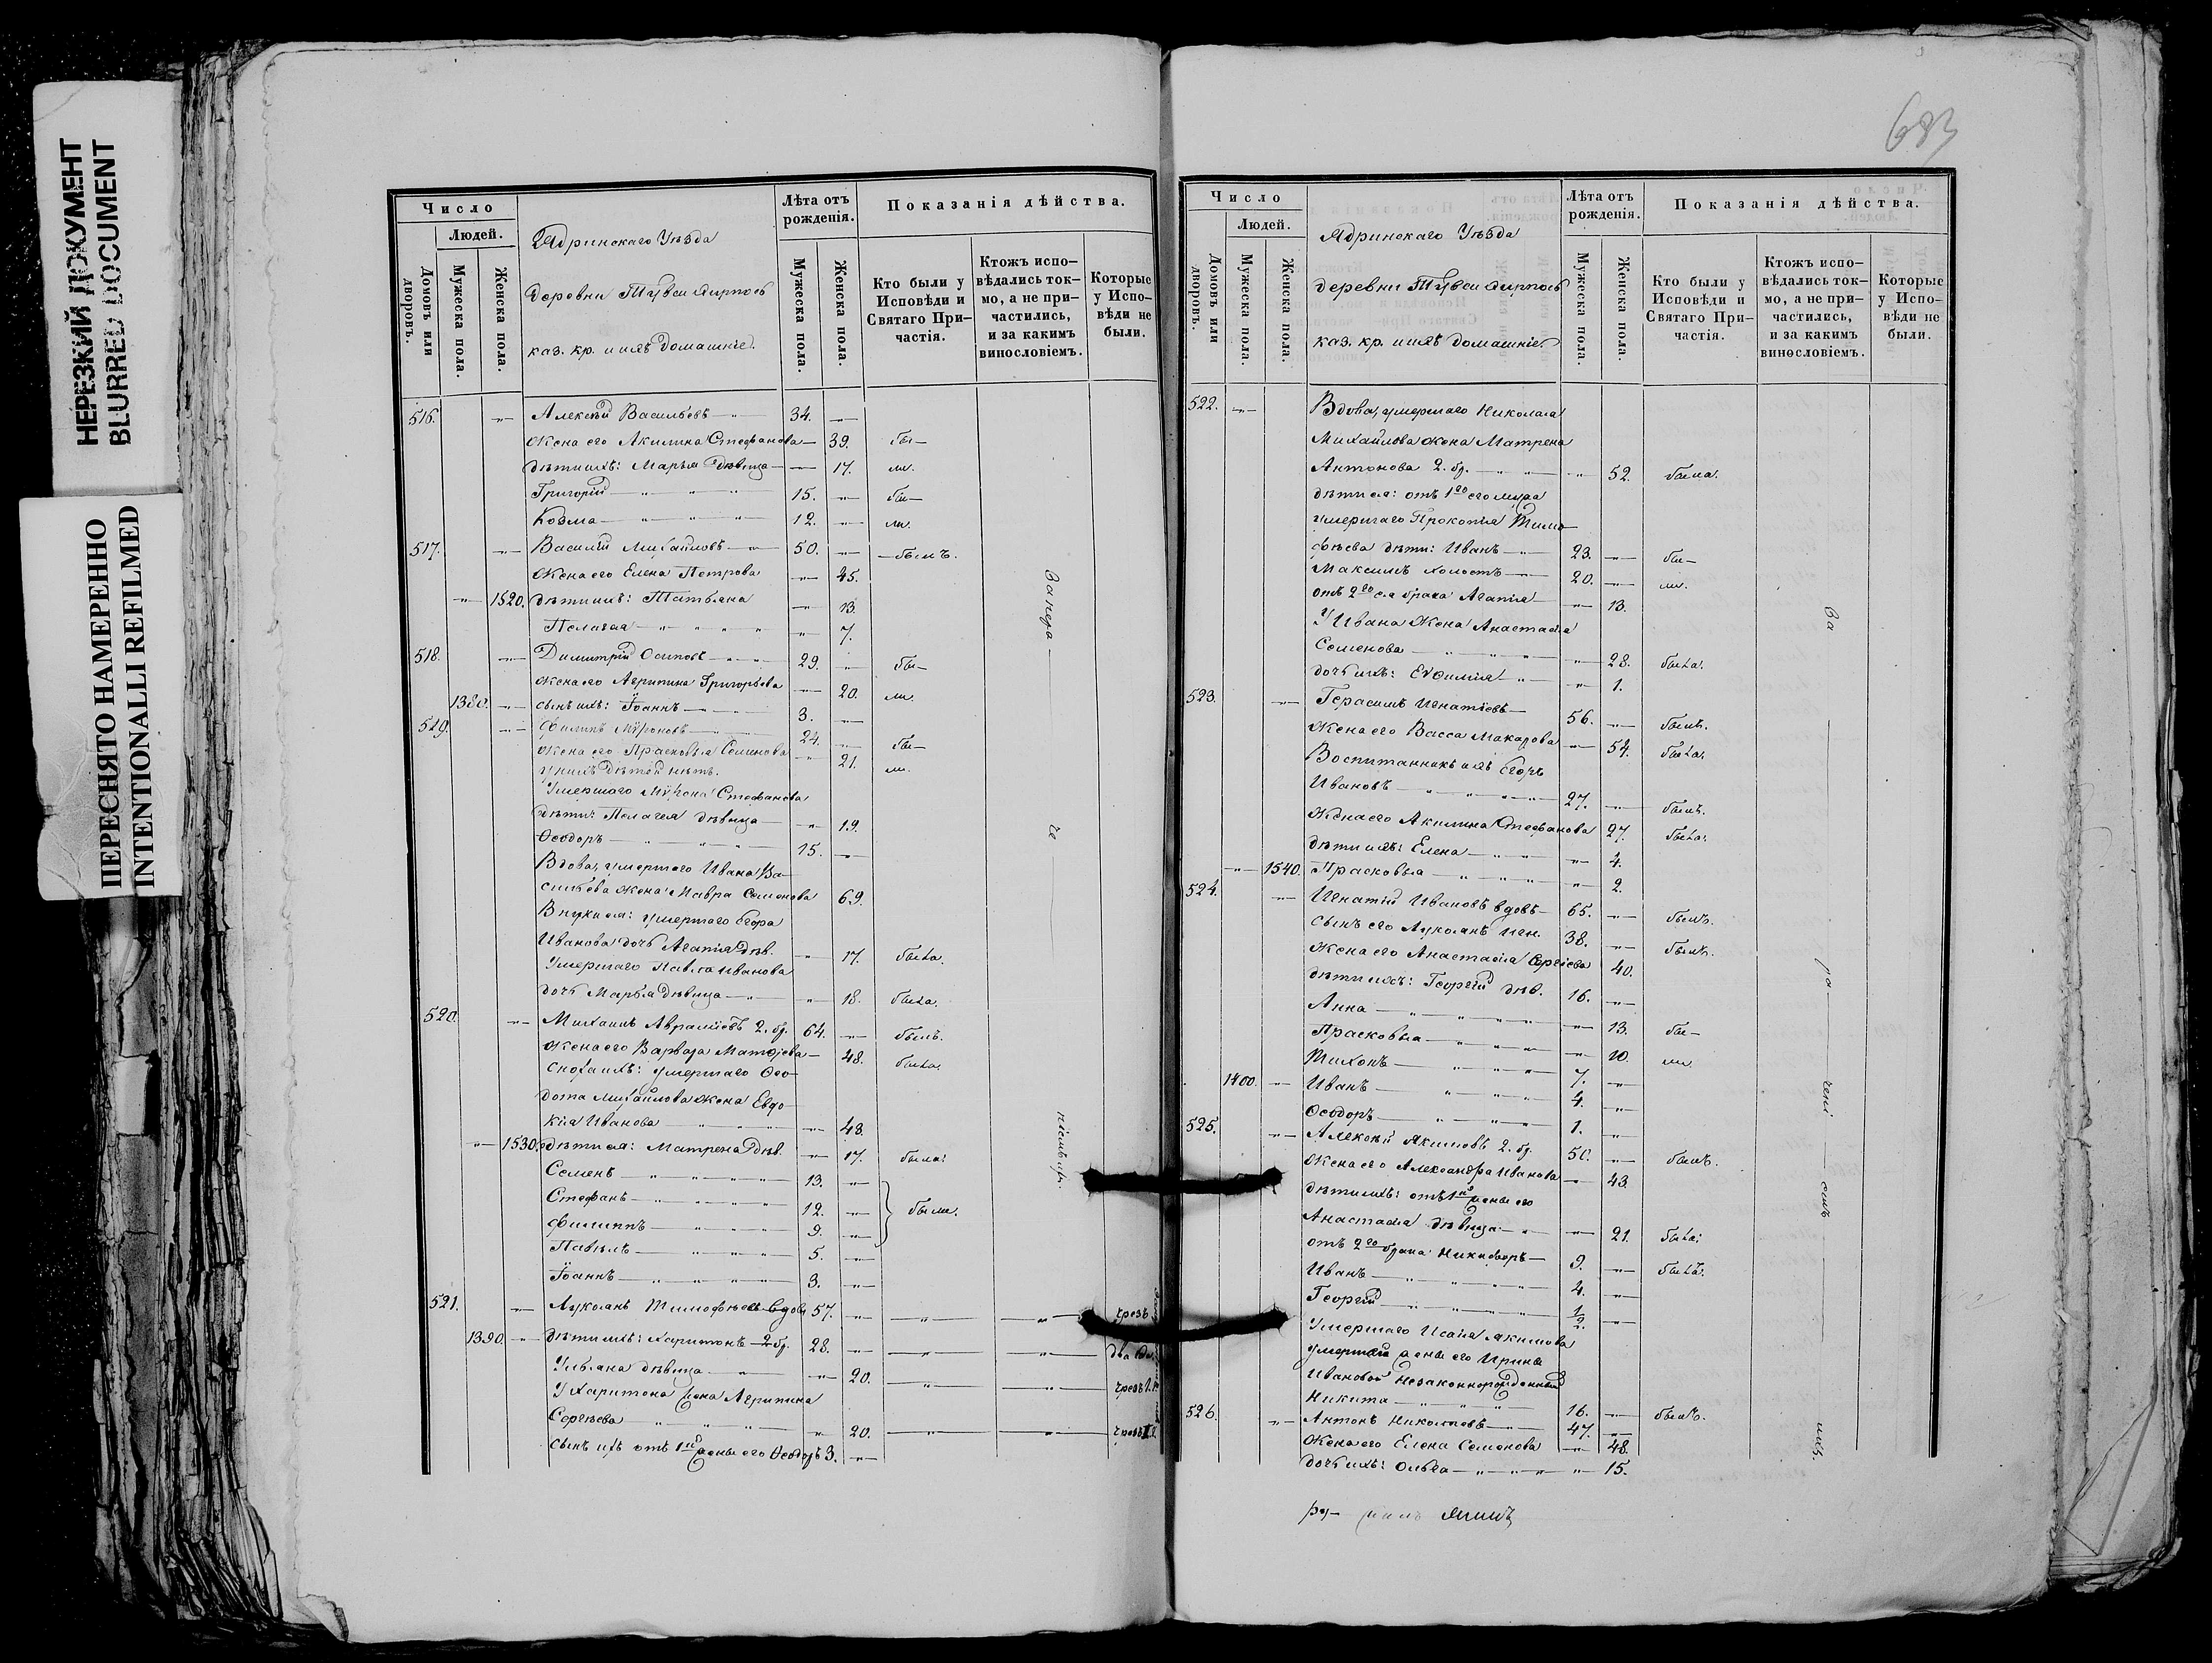 НЕРЕЗКИЙ ДОКУМЕНТ
BLURRED DOCUMENT
ПЕРЕСНЯТО НАМЕРЕННО
INTENTIONALLI REFILMED
Число
Людей.
Домовъ или дворовъ.
Мужеска пола.
Женска пола.
Ядринскаго Уѣзда
деревни
каз. кр. и ихъ домашніе.
Лѣта отъ рожденія.
Мужеска пола.
Женска пола.
Показанія дѣйства.
Кто были у Исповѣди и Святаго При-частія.
Ктожъ испо-вѣдались ток-мо, а не при-частились, и за какимъ винословіемъ.
Которые у Испо-вѣди не были.
516. Алексѣй Васильевъ 34.
Жена его Акилина Стефанова 39. бы-
дѣти ихъ: Марья дѣвица 17. ли.
Григорій 15. бы-
Козма 12. ли.
517. Василій Михайловъ 50. былъ.
Жена его Елена Петрова 45.
1520. дѣти ихъ: Татьяна 13.
Пелагея 7.
518. Димитрій Осиповъ 29. бы-
Жена его Агрипина Григорьева 20. ли.
1380. сынъ ихъ: Іоаннъ 3.
519. Филипъ Мѵроновъ 24. бы-
Жена его Прасковья Семенова 21. ли.
у нихъ дѣтей нѣтъ.
Умершаго Мѵрона Стефанова
дѣти: Пелагея дѣвица 19.
Ѳеодоръ 15.
Вдова, умершаго Ивана Ва-
сильева жена Мавра Семенова 69.
Внуки ея: умершаго Егора
Иванова дочь Агапія дѣв. 17. была.
Умершаго Павла Иванова
дочь Марья дѣвица 18. была.
520. Михаилъ Авраміевъ 2. бр. 64. былъ.
Жена его Варвара Матѳеева 48. была.
Сноха ихъ: умершаго Ѳео-
дота Михайлова жена Евдо-
кія Иванова 48.
1530. дѣти ея: Матрена дѣв. 17. была.
Семенъ 13.
Стефанъ 12. были.
Филиппъ 9.
Павелъ 5.
Іоаннъ 3.
521. Лукіанъ Тимофѣевъ вдовъ 57. чрезъ
1390. дѣти ихъ: Харитонъ 2 бр. 28. два
Ульяна дѣвица 20. чрезъ
У Харитона жена Агрипина
Сергѣева 20. чрезъ
сынъ ихъ отъ 1й жены его Ѳеодоръ 3.
683
Число
Людей.
Домовъ или дворовъ.
Мужеска пола.
Женска пола.
Ядринскаго Уѣзда
деревни
каз. кр. и ихъ домашніе.
Лѣта отъ рожденія.
Мужеска пола.
Женска пола.
Показанія дѣйства.
Кто были у Исповѣди и Святаго При-частія.
Ктожъ испо-вѣдались ток-мо, а не при-частились, и за какимъ винословіемъ.
Которые у Испо-вѣди не были.
522. Вдова, умершаго Николая
Михайлова жена Матрена
Антонова 2. бр. 52. была.
дѣти ея: отъ 1го его мужа
умершаго Прокопія Тимо-
фѣева дѣти: Иванъ 23. бы-
Максимъ холостъ 20. ли.
отъ 2го ея брака Агапія 13.
У Ивана жена Анастасія
Семенова 28. была.
дочь ихъ: Евѳимія 1.
523. Герасимъ Игнатіевъ 56. былъ.
Жена его Васса Макарова 54. была.
Воспитанникъ ихъ Егоръ
Ивановъ 27. былъ.
Жена его Акилина Стефанова 27. была.
дѣти ихъ: Елена 4.
1540. Прасковья 2.
524. Игнатій Ивановъ вдовъ 65. былъ.
Сынъ его Лукіанъ Игн. 38. былъ.
Жена его Анастасія Сергіева 40.
дѣти ихъ: Георгій 16.
Анна 13. бы-
Прасковья 10. ли
Тихонъ 7.
1400. Иванъ 4.
Ѳеодоръ 1.
525. Алексѣй Якимовъ 2. бр. 50. былъ.
Жена его Александра Иванова 43.
дѣти ихъ: отъ 1й жены его
Анастасія дѣвица 21. была.
отъ 2го брака Никифоръ 9. былъ.
Иванъ 4.
Георгій 1/2.
Умершаго Исаія Якимова
умершей жены его Ирины
Ивановой Незаконнорожденный
Никита 16. былъ.
526. Антонъ Николаевъ 47.
Жена его Елена Семенова 48.
дочь ихъ: Ольга 15.